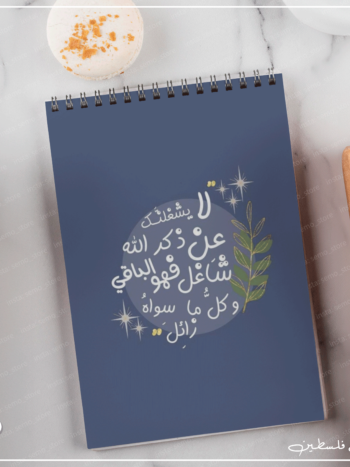 "لا
يشغلنّك
عنْ ذكر الله
شاغل فهو الباقي
وكلُّ ما سواهُ
زائلَ"
فلسطين